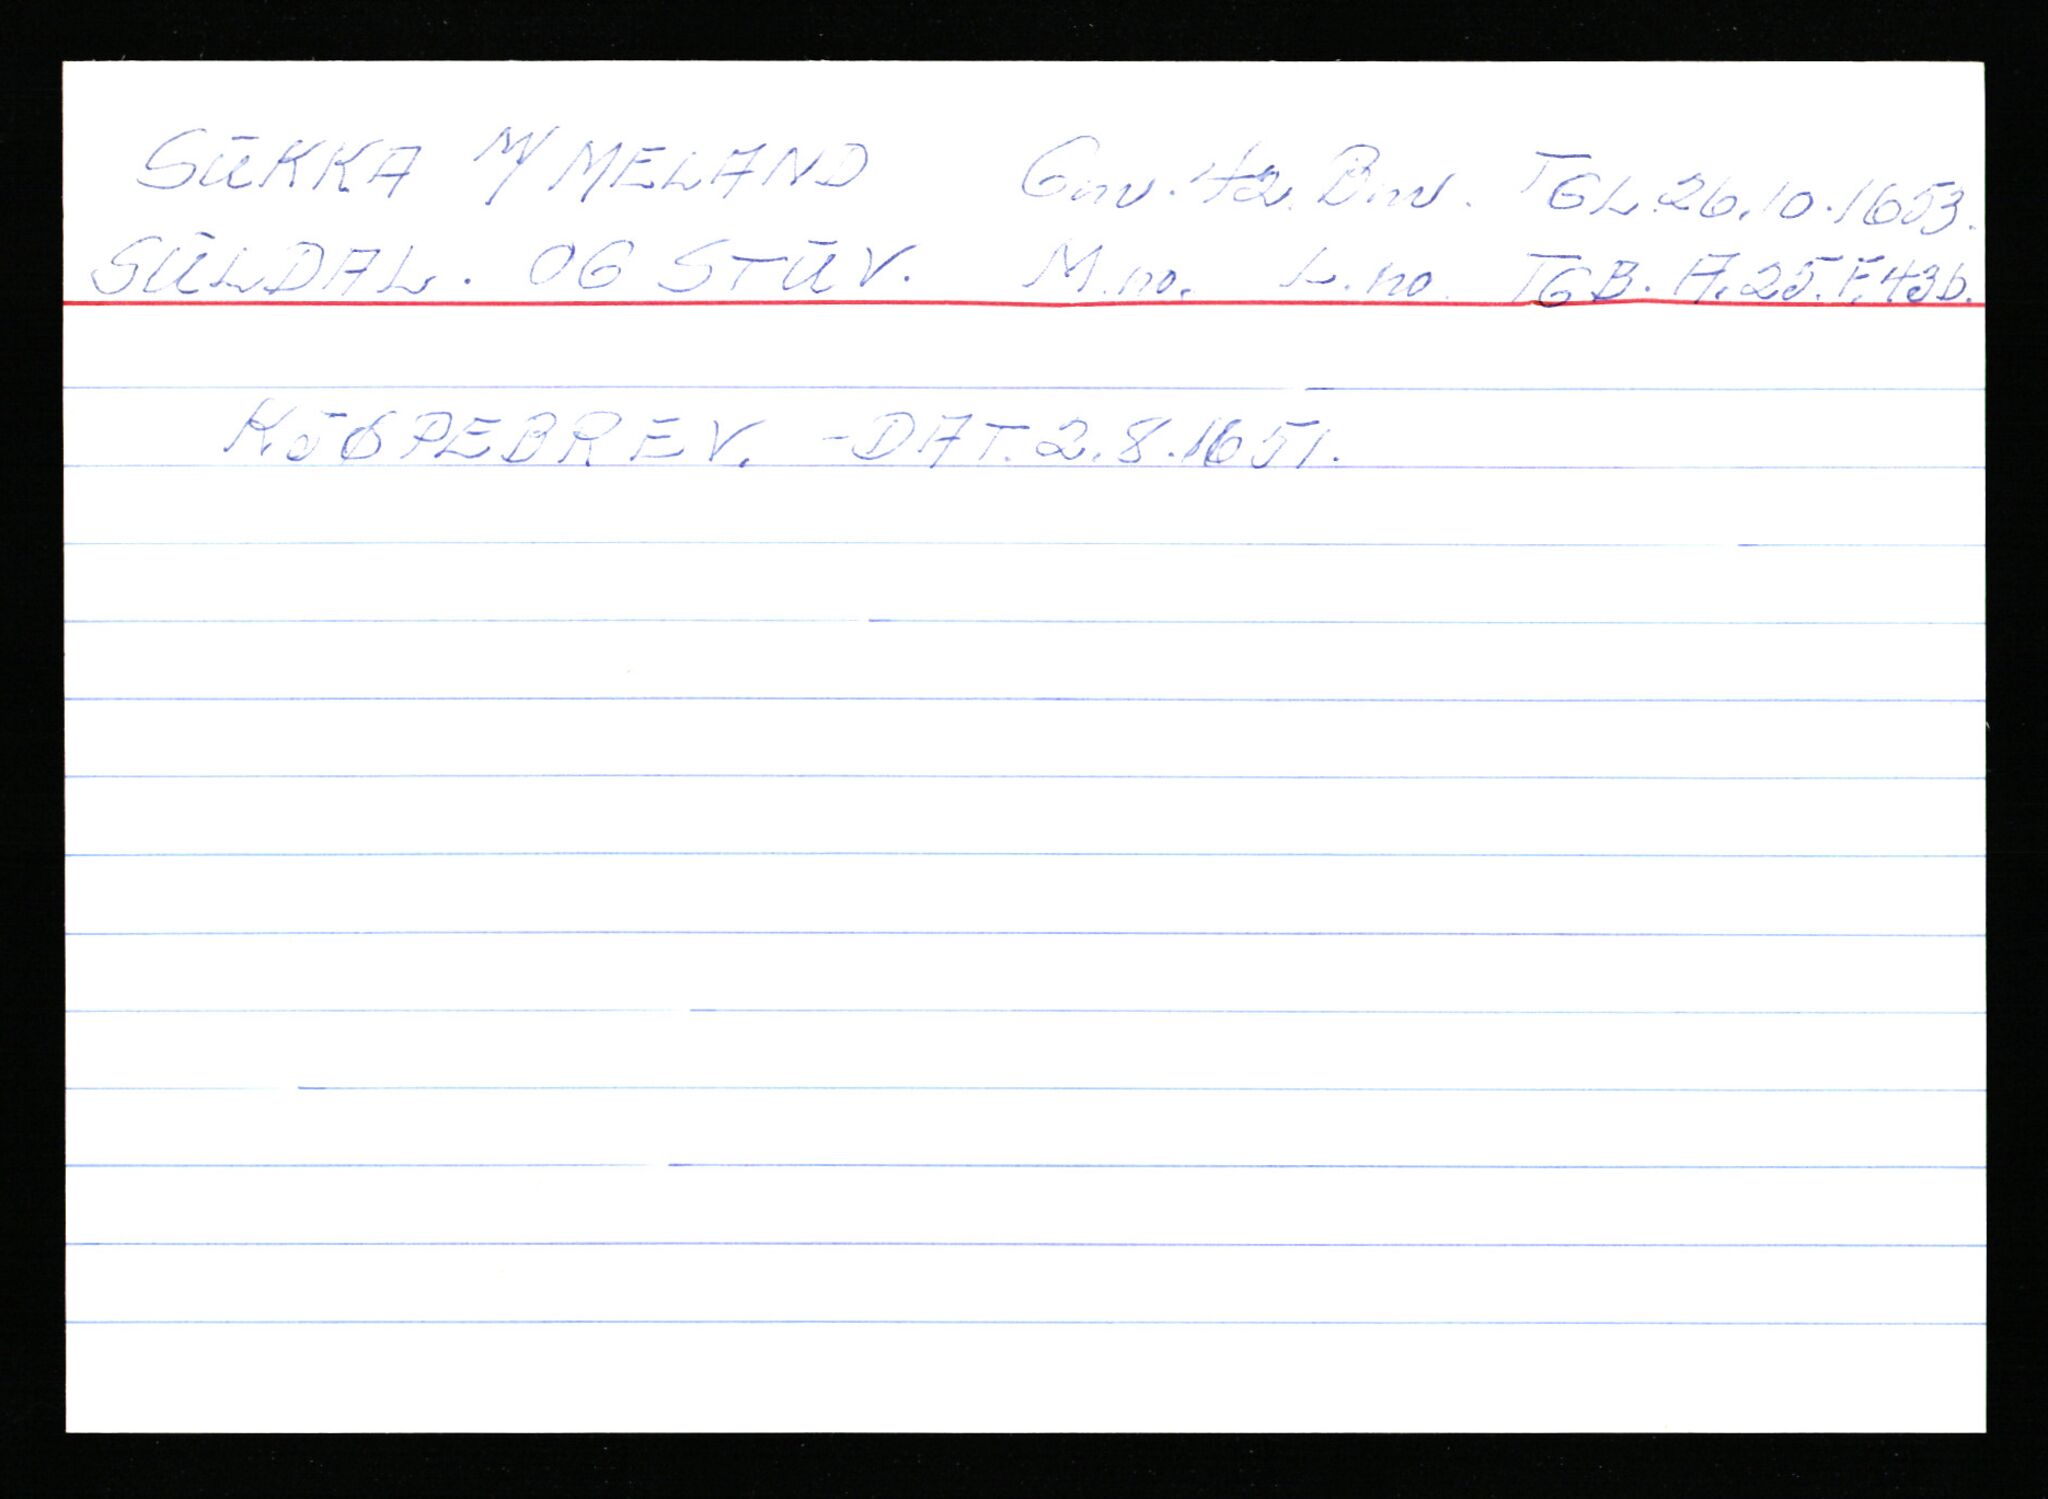 SŪKKA M/ MELAND Gnr. 42. Bnr. TGL. 26.10.1653.
SŪLDAL. OG STŪV. M.no. L.no. TGB. A.25.F.43b.
KJØPEBREV. - DAT. 2.8.1651.